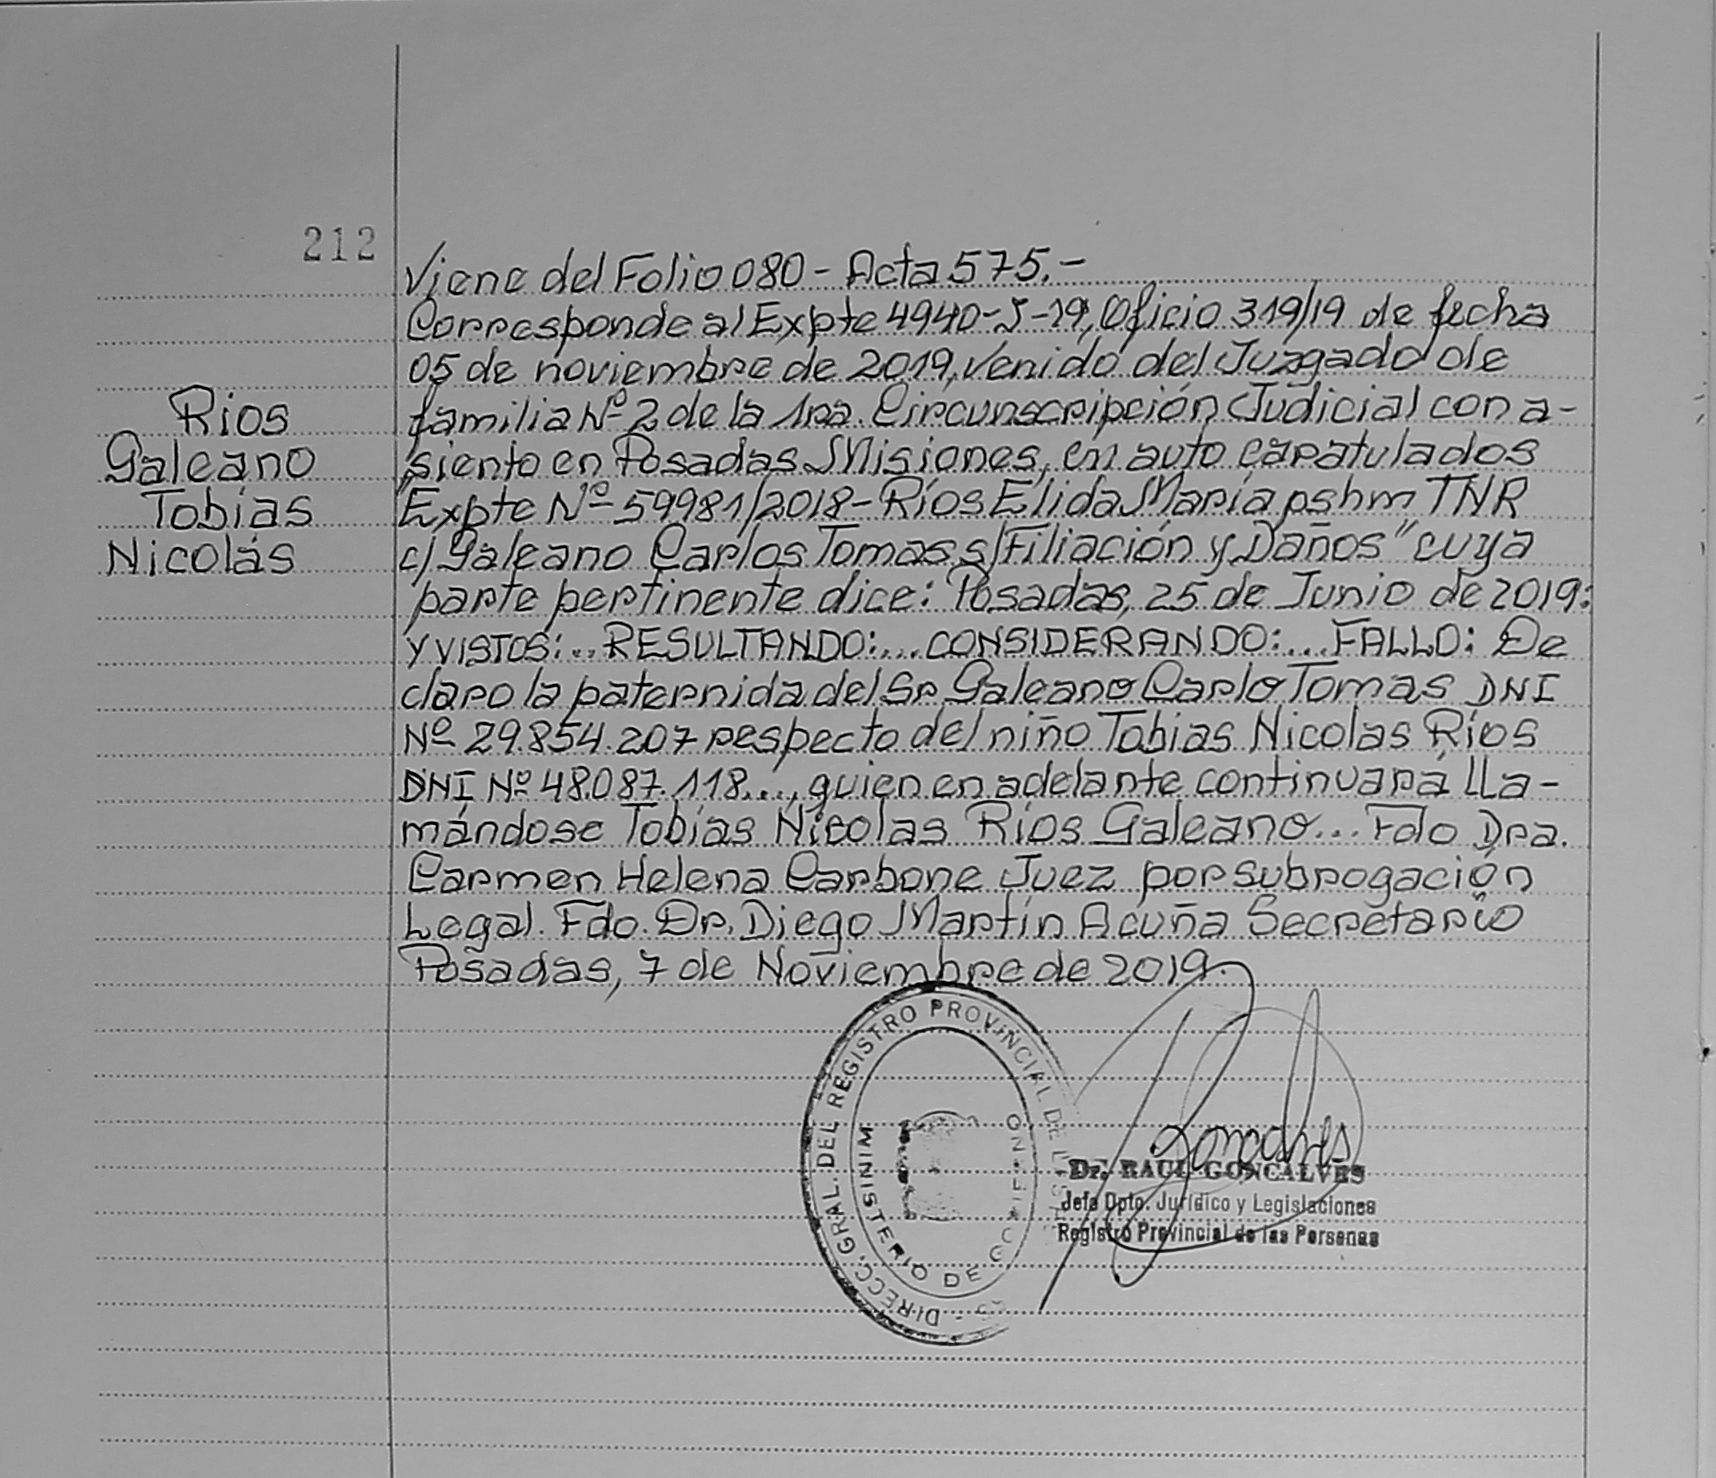 212
Viene del Folio 080 - Acta 575.-
Corresponde al Expte 4940-J-19, Oficio 319/19 de fecha
05 de noviembre de 2019, venido del Juzgado de
Ríos
familia Nº 2 de la 1ra. Circunscripción Judicial con a-
Galeano
siento en Posadas Misiones, en auto caratulados
Tobias
"Expte Nº 59981/2018 - Ríos Elida María pshm TNR
Nicolás
c/ Galeano Carlos Tomas s/Filiación y Daños" cuya
parte pertinente dice: Posadas, 25 de Junio de 2019:
Y VISTOS:... RESULTANDO:... CONSIDERANDO:... FALLO: De
claro la paternidad del Sr. Galeano Carlo Tomas DNI
Nº 29.854.207 respecto del niño Tobias Nicolas Ríos
DNI Nº 48.087.118..., quien en adelante continuará lla-
mándose Tobias Nicolas Ríos Galeano... Fdo Dra.
Carmen Helena Carbone Juez por subrogación
Legal. Fdo. Dr. Diego Martín Acuña Secretario
Posadas, 7 de Noviembre de 2019.
DIRECC. GRAL. DEL REGISTRO PROVINCIAL DE
MINISTERIO DE
Goncalves
Dr. RAUL GONCALVES
Jefe Dpto. Jurídico y Legislaciones
Registro Provincial de las Personas